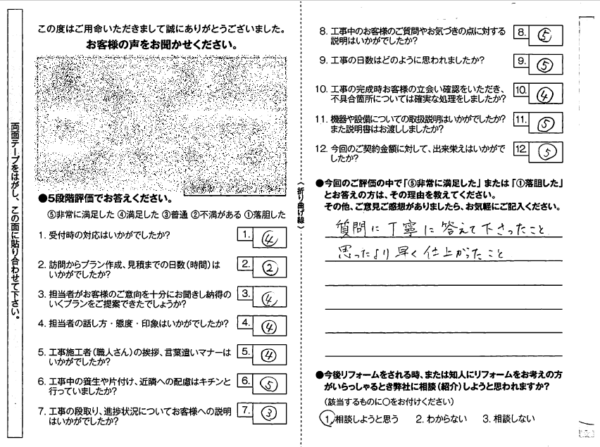 両面テープをはがし、この面に貼り合わせて下さい。
この度はご用命いただきまして誠にありがとうございました。
お客様の声をお聞かせください。
●5段階評価でお答えください。
⑤非常に満足した ④満足した ③普通 ②不満がある ①落胆した
1. 受付時の対応はいかがでしたか?
1. ④
2. 訪問からプラン作成、見積までの日数(時間)は
いかがでしたか?
2. ②
3. 担当者がお客様のご意向を十分にお聞きし納得の
いくプランをご提案できたでしょうか?
3. ④
4. 担当者の話し方・態度・印象はいかがでしたか?
4. ④
5. 工事施工者(職人さん)の挨拶、言葉遣いマナーは
いかがでしたか?
5. ④
6. 工事中の養生や片付け、近隣への配慮はキチンと
行っていましたか?
6. ⑤
7. 工事の段取り、進捗状況についてお客様への説明
はいかがでしたか?
7. ③
(折り曲げ線)
8. 工事中のお客様のご質問やお気づきの点に対する
説明はいかがでしたか?
8. ⑤
9. 工事の日数はどのように思われましたか?
9. ⑤
10. 工事の完成時お客様の立会い確認をいただき、
不具合箇所については確実な処理をしましたか?
10. ④
11. 機器や設備についての取扱説明はいかがでしたか?
また説明書はお渡ししましたか?
11. ⑤
12. 今回のご契約金額に対して、出来栄えはいかがでしたか?
12. ⑤
●今回のご評価の中で「⑤非常に満足した」または「①落胆した」
とお答えの方は、その理由を教えてください。
その他、ご意見ご感想がありましたら、お気軽にご記入ください。
質問に丁寧に答えて下さったこと
思ったより早く仕上がったこと
●今後リフォームをされる時、または知人にリフォームをお考えの方
がいらっしゃるとき弊社に相談(紹介)しようと思われますか?
(該当するものに○をお付けください)
1. 相談しようと思う 2. わからない 3. 相談しない